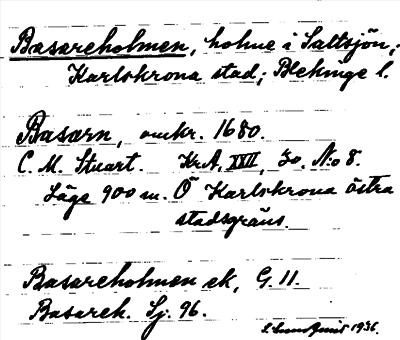 Basareholmen, holme i Saltsjön,
Karlskrona stad; Blekinge l.
Basarn, omkr. 1680.
C. M. Stuart. KrA, XVII, 30. N:o 8.
Läge 900 m. Ö Karlskrona östra
stadsgräns.
Basareholmen ek, G. 11.
Basareh. Sj. 96.
1936.